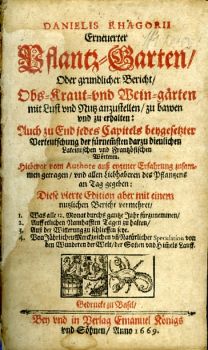 DANIELIS RHAGORII
Erneuerter
Pflantz-Garten/
Oder grundlicher Bericht/
Obs-Kraut-und Wein-gärten
mit Lust und Nutz anzustellen/ zu bawen
und zu erhalten:
Auch zu End jedes Capitels beygesetzter
Verteutschung der fürnemsten darzu dienlichen
Lateinischen und Frantzösischen
Wörteren.
Hiebevor vom Authore auß eigener Erfahrung zusam-
men getragen/ und allen Liebhaberen des Pflantzens
an Tag gegeben:
Diese vierte Edition aber mit einem
nutzlichen Bericht vermehret/
1. Was alle 12. Monat durchs gantze Jahr fürzunemmen/
2. Auff etlichen Namhafften Tagen zu halten/
3. Auß der Witterung zu schliessen seye.
4. Von Jährlichen Merckzeichen auß Natürlicher Speculation von
den Wunderen der Welt/ der Sonnen und Himels Lauff.
Gedruckt zu Basel/
Bey und in Verlag Emanuel Königs
und Söhnen/ Anno 1669.